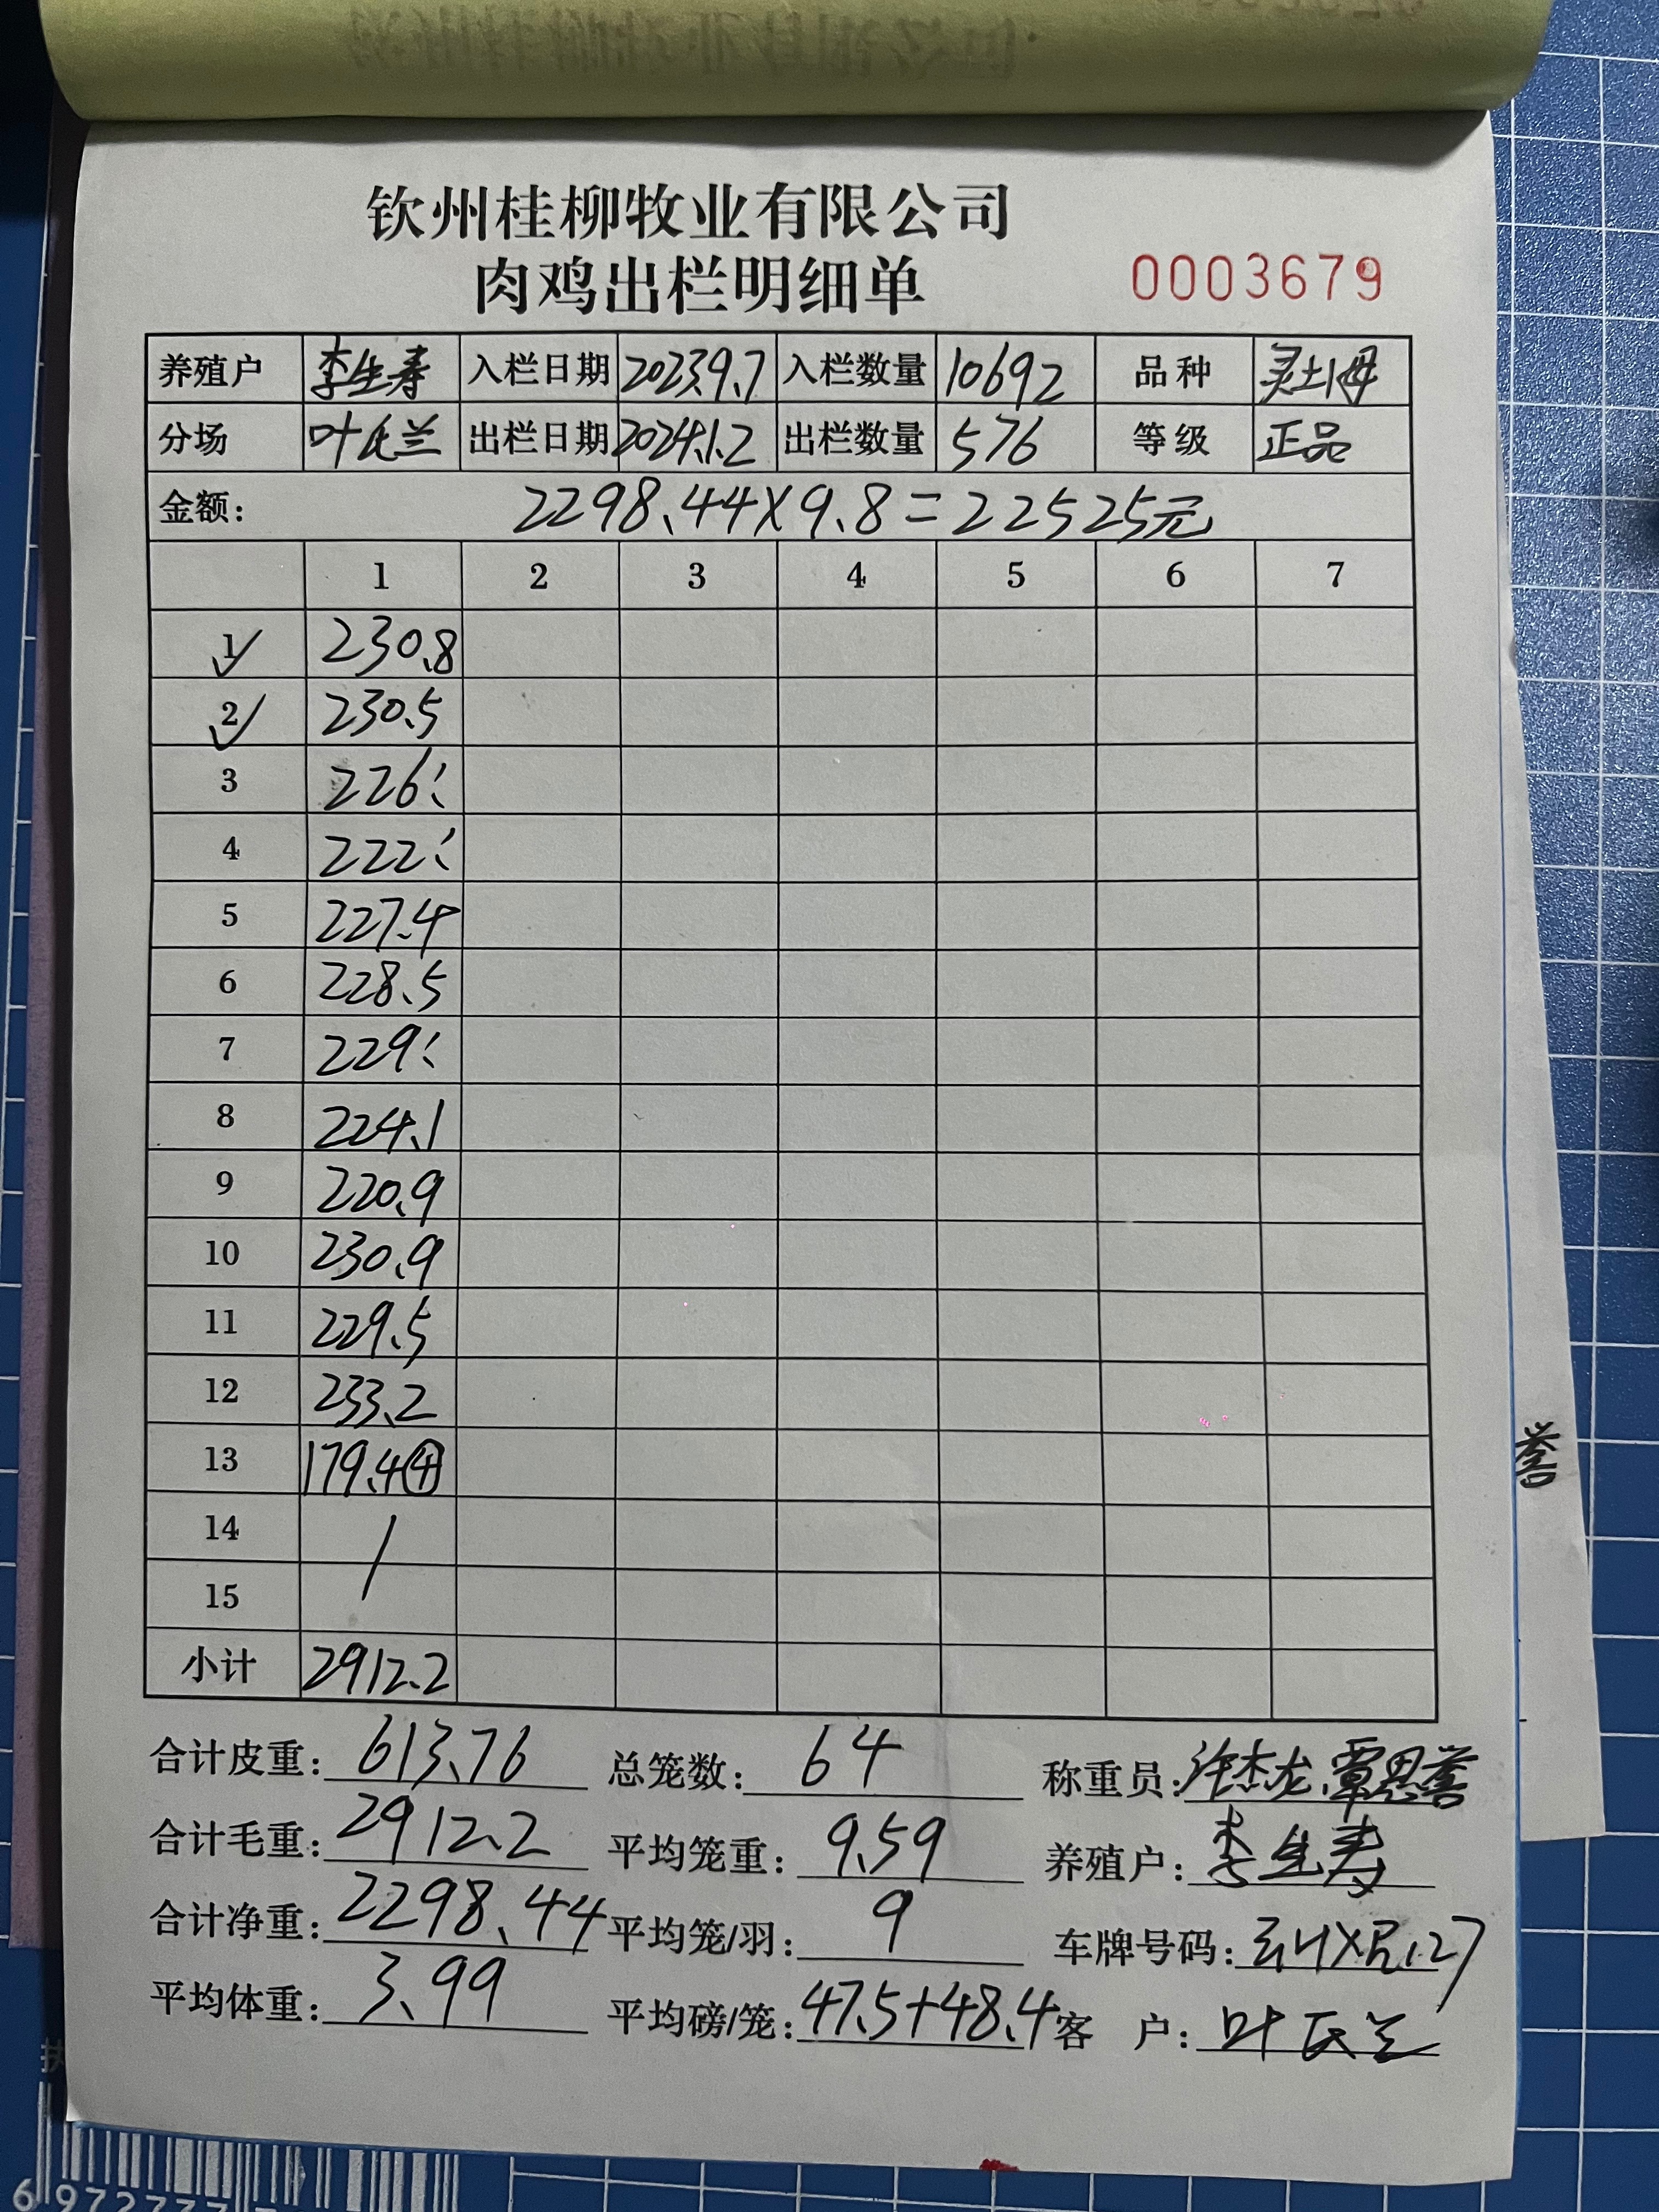 钦州桂柳牧业有限公司
肉鸡出栏明细单 0003679
养殖户 李生寿 入栏日期 2023.9.7 入栏数量 10692 品种 灵土母
分场 叶氏兰 出栏日期 2024.1.2 出栏数量 576 等级 正品
金额: 2298.44×9.8=22525元
1 2 3 4 5 6 7
1 230.8
2 230.5
3 226
4 222
5 227.4
6 228.5
7 229
8 224.1
9 220.9
10 230.9
11 229.5
12 233.2
13 179.4④
14
15
小计 2912.2
合计皮重: 613.76 总笼数: 64 称重员: 许杰龙、覃恩誉
合计毛重: 2912.2 平均笼重: 9.59 养殖户: 李生寿
合计净重: 2298.44 平均笼/羽: 9 车牌号码:
平均体重: 3.99 平均磅/笼: 47.5+48.4 客 户: 叶氏兰
誉
6 972737